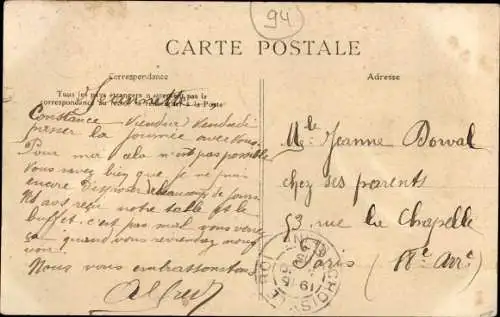 94
CARTE POSTALE
Correspondance
Tous les pays étrangers n'acceptent pas la
correspondance au recto à la Poste
Constance viendra vendredi
passer la journée avec vous.
Pour moi cela n'est pas possible
Vous savez bien que je ne puis
encore disposer de beaucoup de jours
reçu notre table et le
buffet. c'est pas mal vous verrez
ça quand vous reviendrez
Nous vous embrassons
Alfred
Adresse
Mlle Jeanne Dorval
chez ses parents
53 rue de la Chapelle
Paris (18e Arrt)
CHOISY-LE-ROI